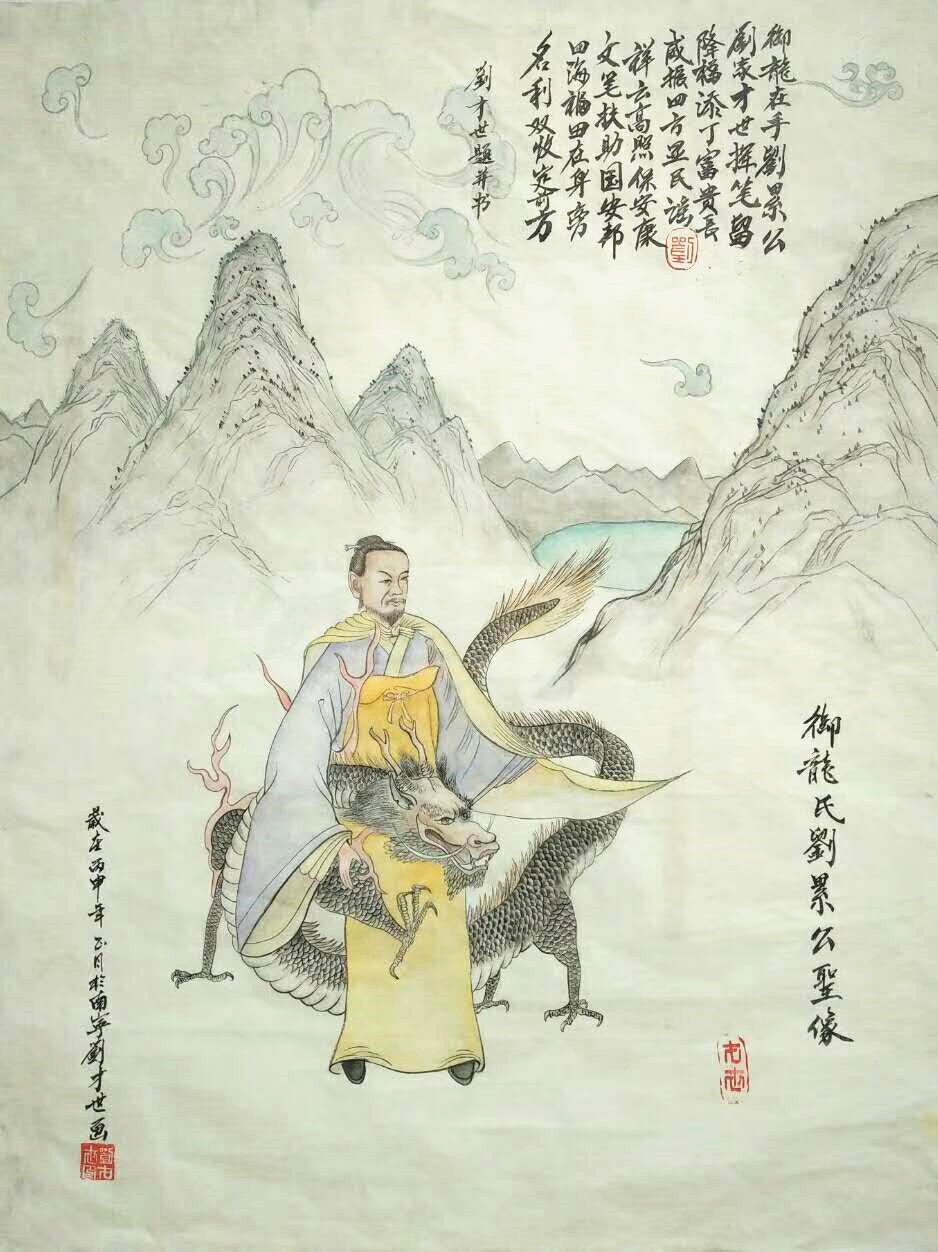 御龍在手劉累公
劉家才世揮笔留
降福添丁富貴長
威振四方显民謠
祥云高照保安康
文笔扶助国安邦
四海福田在身旁
名利双收定前方
劉才世題并书
劉
御龍氏劉累公聖像
歲在丙申年正月於南宁劉才世画